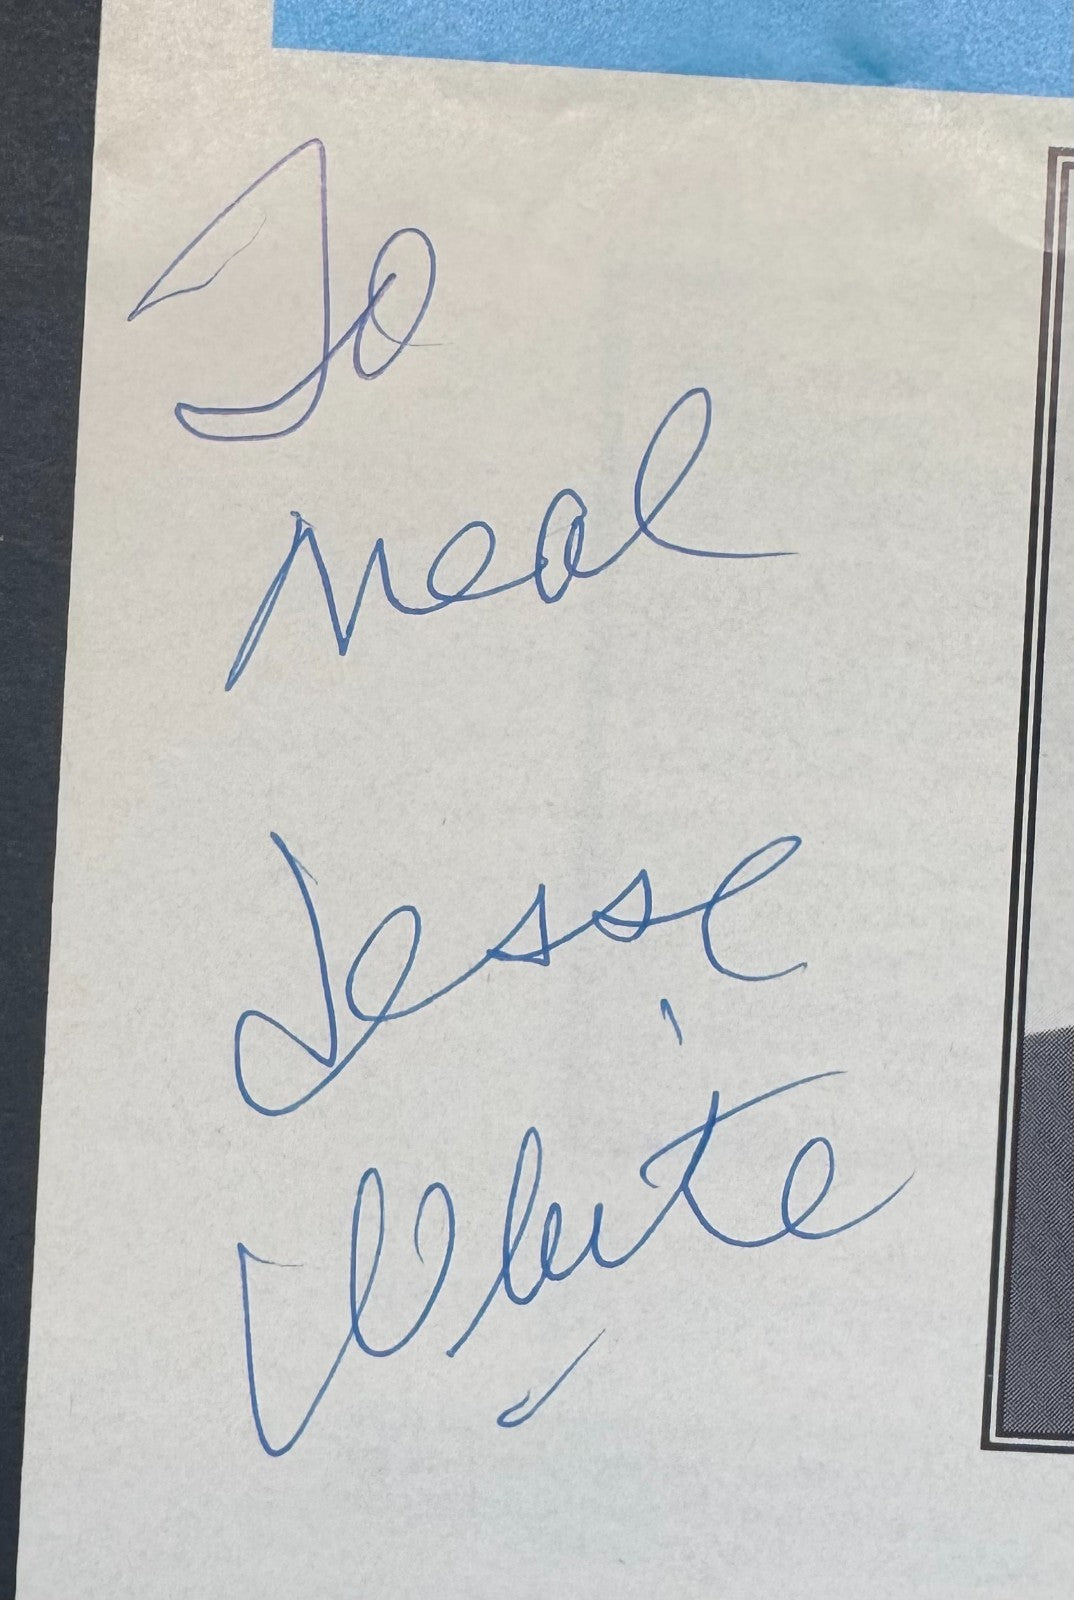 To
Neal
Jesse
White